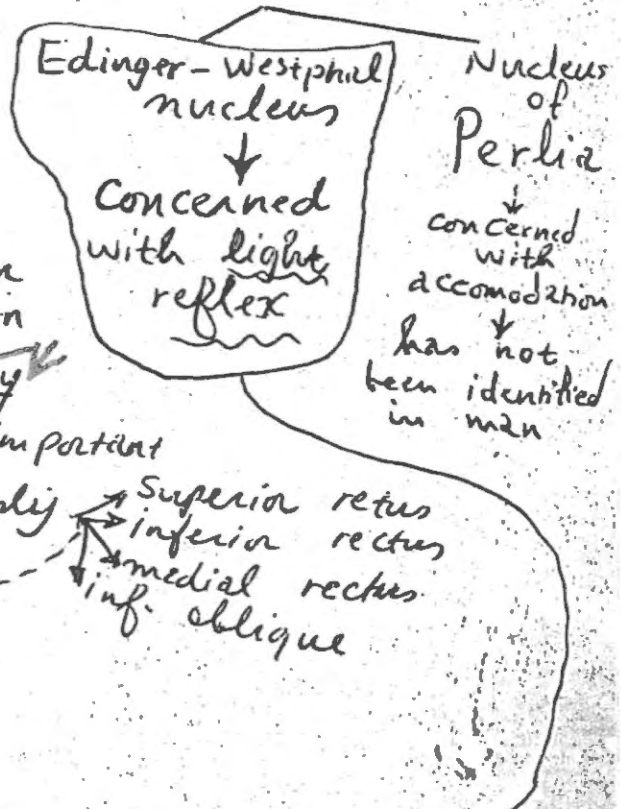 Edinger-Westphal
nucleus
Concerned
with light
reflex
Nucleus
of
Perlia
concerned
with
accomodation
has not
been identified
in man
important
Superior retus
inferior rectus
medial rectus
inf. oblique